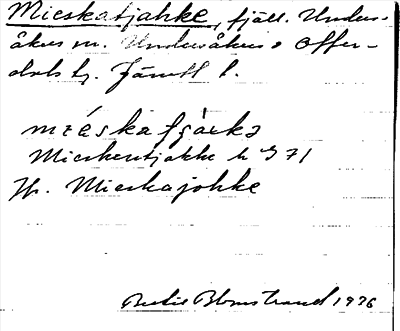 Mieskatjahke, fjäll. Unders-
åkers sn. Undersåkers o Offer-
dals tg. Jämtl l.
mìéskatjàrkə
Mieskentjakke k 571
Jfr. Mieskajohke
Bertil Blomstrand 1936